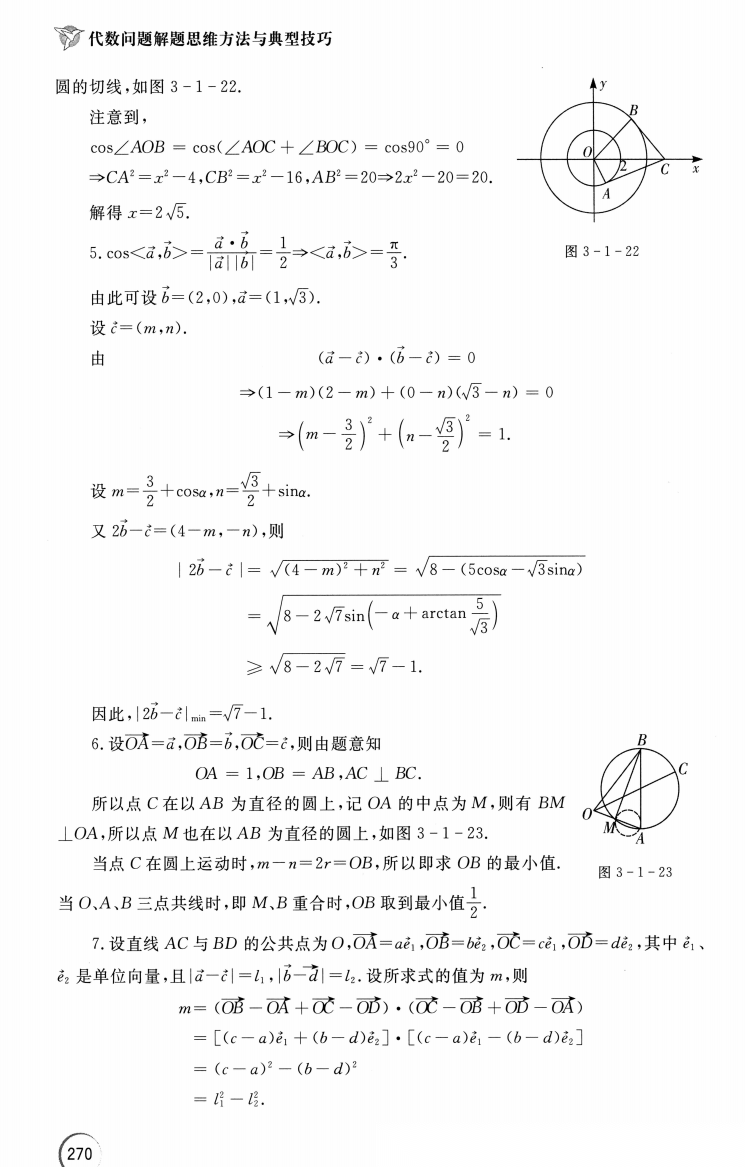 代数问题解题思维方法与典型技巧
圆的切线,如图 3-1-22.
注意到,
cos∠AOB = cos(∠AOC + ∠BOC) = cos90° = 0
⇒CA²=x²-4,CB²=x²-16,AB²=20⇒2x²-20=20.
解得 x=2√5.
y
B
O
2
C
x
A
图 3-1-22
5. cos<a⃗,b⃗>=a⃗·b⃗/|a⃗||b⃗|=1/2⇒<a⃗,b⃗>=π/3.
由此可设b⃗=(2,0),a⃗=(1,√3).
设c⃗=(m,n).
由 (a⃗-c⃗)·(b⃗-c⃗)=0
⇒(1-m)(2-m)+(0-n)(√3-n)=0
⇒(m-3/2)²+(n-√3/2)²=1.
设 m=3/2+cosα,n=√3/2+sinα.
又 2b⃗-c⃗=(4-m,-n),则
|2b⃗-c⃗|=√((4-m)²+n²)=√(8-(5cosα-√3sinα))
=√(8-2√7sin(-α+arctan 5/√3))
≥√(8-2√7)=√7-1.
因此,|2b⃗-c⃗|min=√7-1.
6. 设OA⃗=a⃗,OB⃗=b⃗,OC⃗=c⃗,则由题意知
OA = 1,OB = AB,AC ⊥ BC.
所以点 C 在以 AB 为直径的圆上,记 OA 的中点为 M,则有 BM
⊥OA,所以点 M 也在以 AB 为直径的圆上,如图 3-1-23.
当点 C 在圆上运动时,m-n=2r=OB,所以即求 OB 的最小值.
当 O、A、B 三点共线时,即 M、B 重合时,OB 取到最小值1/2.
B
C
O
M
A
图 3-1-23
7. 设直线 AC 与 BD 的公共点为 O,OA⃗=ae⃗₁,OB⃗=be⃗₂,OC⃗=ce⃗₁,OD⃗=de⃗₂,其中 e⃗₁、
e⃗₂ 是单位向量,且|a⃗-c⃗|=l₁,|b⃗-d⃗|=l₂. 设所求式的值为 m,则
m=(OB⃗-OA⃗+OC⃗-OD⃗)·(OC⃗-OB⃗+OD⃗-OA⃗)
=[(c-a)e⃗₁+(b-d)e⃗₂]·[(c-a)e⃗₁-(b-d)e⃗₂]
=(c-a)²-(b-d)²
=l₁²-l₂².
270